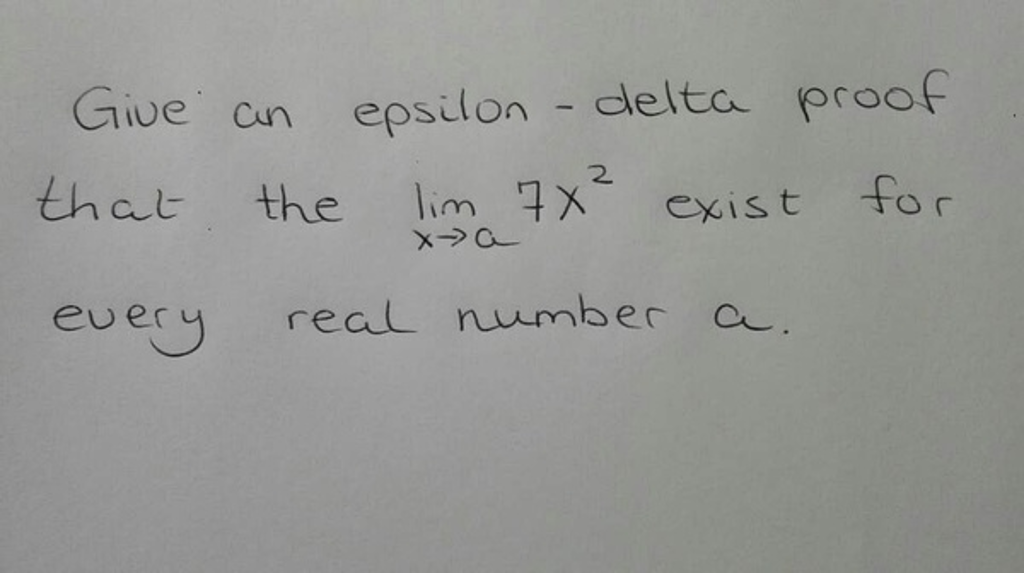 Give an epsilon - delta proof
that the lim x→a 7x² exist for
every real number a.